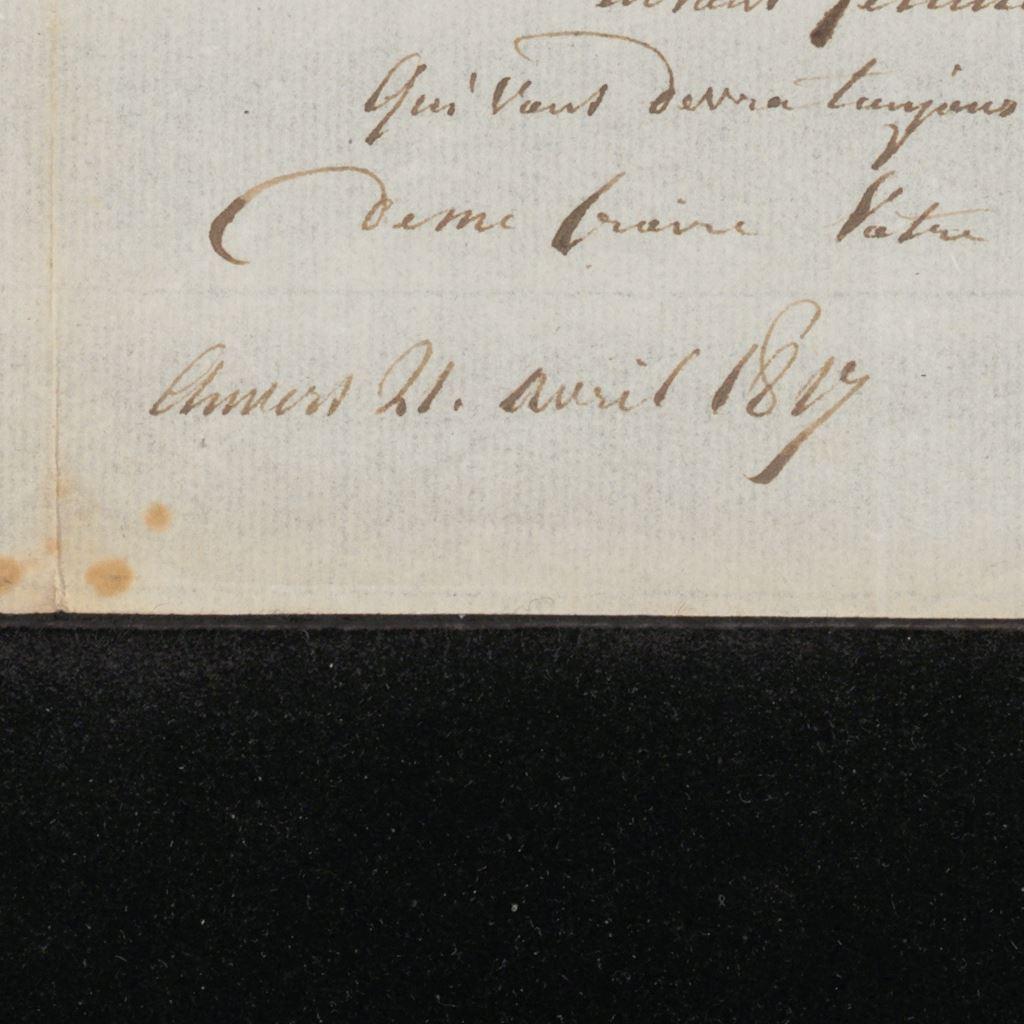 Qui Vous devra toujours
de me Croire Votre
Anvers 21. avril 1817